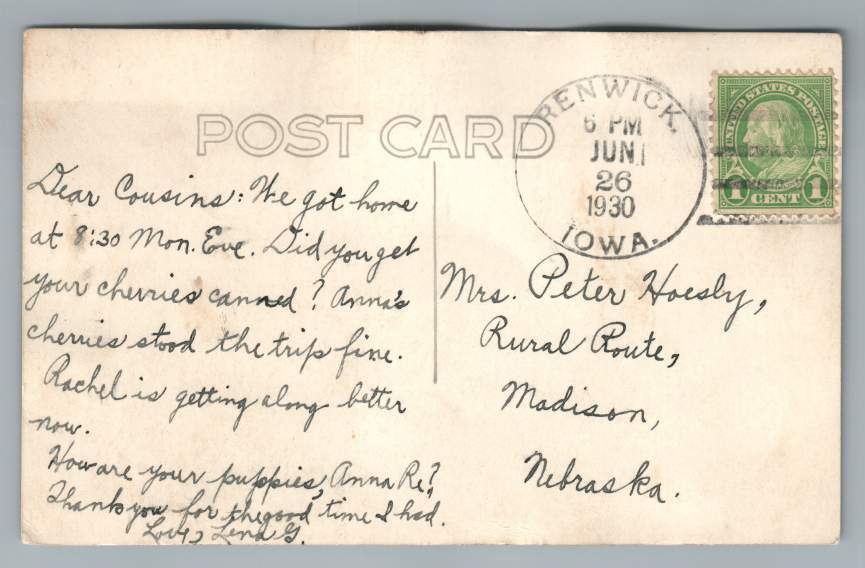 POST CARD
RENWICK,
6 PM
JUN
26
1930
IOWA.
UNITED STATES POSTAGE
1 CENT 1
Dear Cousins: We got home
at 8:30 Mon. Eve. Did you get
your cherries canned? Anna's
cherries stood the trip fine.
Rachel is getting along better
now.
How are your puppies, Anna Re?
Thank you for the good time I had.
Love, Lena G.
Mrs. Peter Hoesly,
Rural Route,
Madison,
Nebraska.